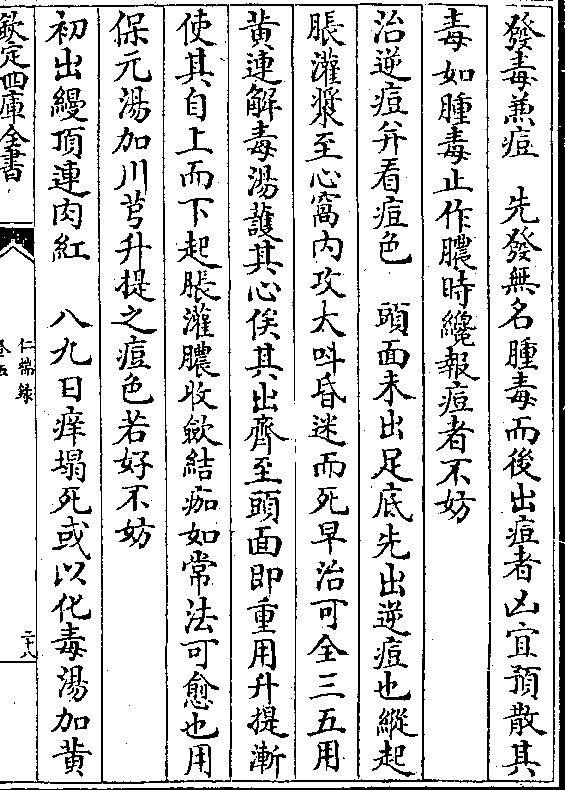 發毒兼痘　先發無名腫毒而後出痘者凶宜預散其
毒如腫毒止作膿時纔報痘者不妨
治逆痘弁看痘色　頭面未出足底先出逆痘也縱起
脹灌漿至心窩内攻大呌昏迷而死早治可全三五用
黄連解毒湯護其心俟其出齊至頭面即重用升提漸
使其自上而下起脹灌膿收斂結痂如常法可愈也用
保元湯加川芎升提之痘色若好不妨
初出縵頂連肉紅　八九日痒塌死或以化毒湯加黄
欽定四庫全書
仁端錄
卷五
二十八